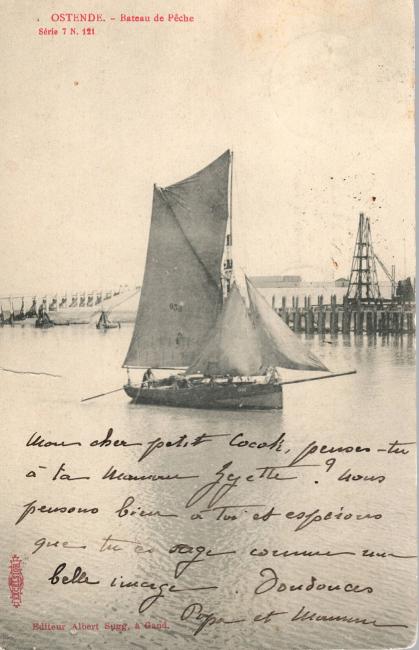 OSTENDE. - Bateau de Pêche
Série 7 N. 121
Mon cher petit Cocok, penses-tu
à ta Maman Zezette ? nous
pensons bien à toi et espérons
que tu es sage comme une
belle image. Doudouces
Papa et Maman
Editeur Albert Sugg, à Gand.